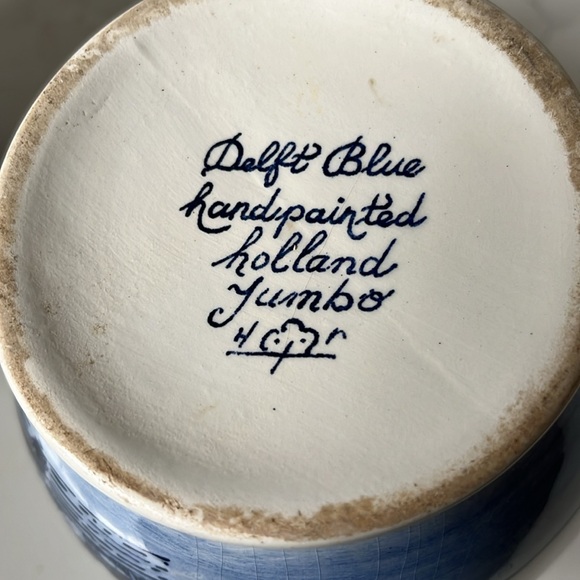 Delft Blue
handpainted
holland
Jumbo
H r